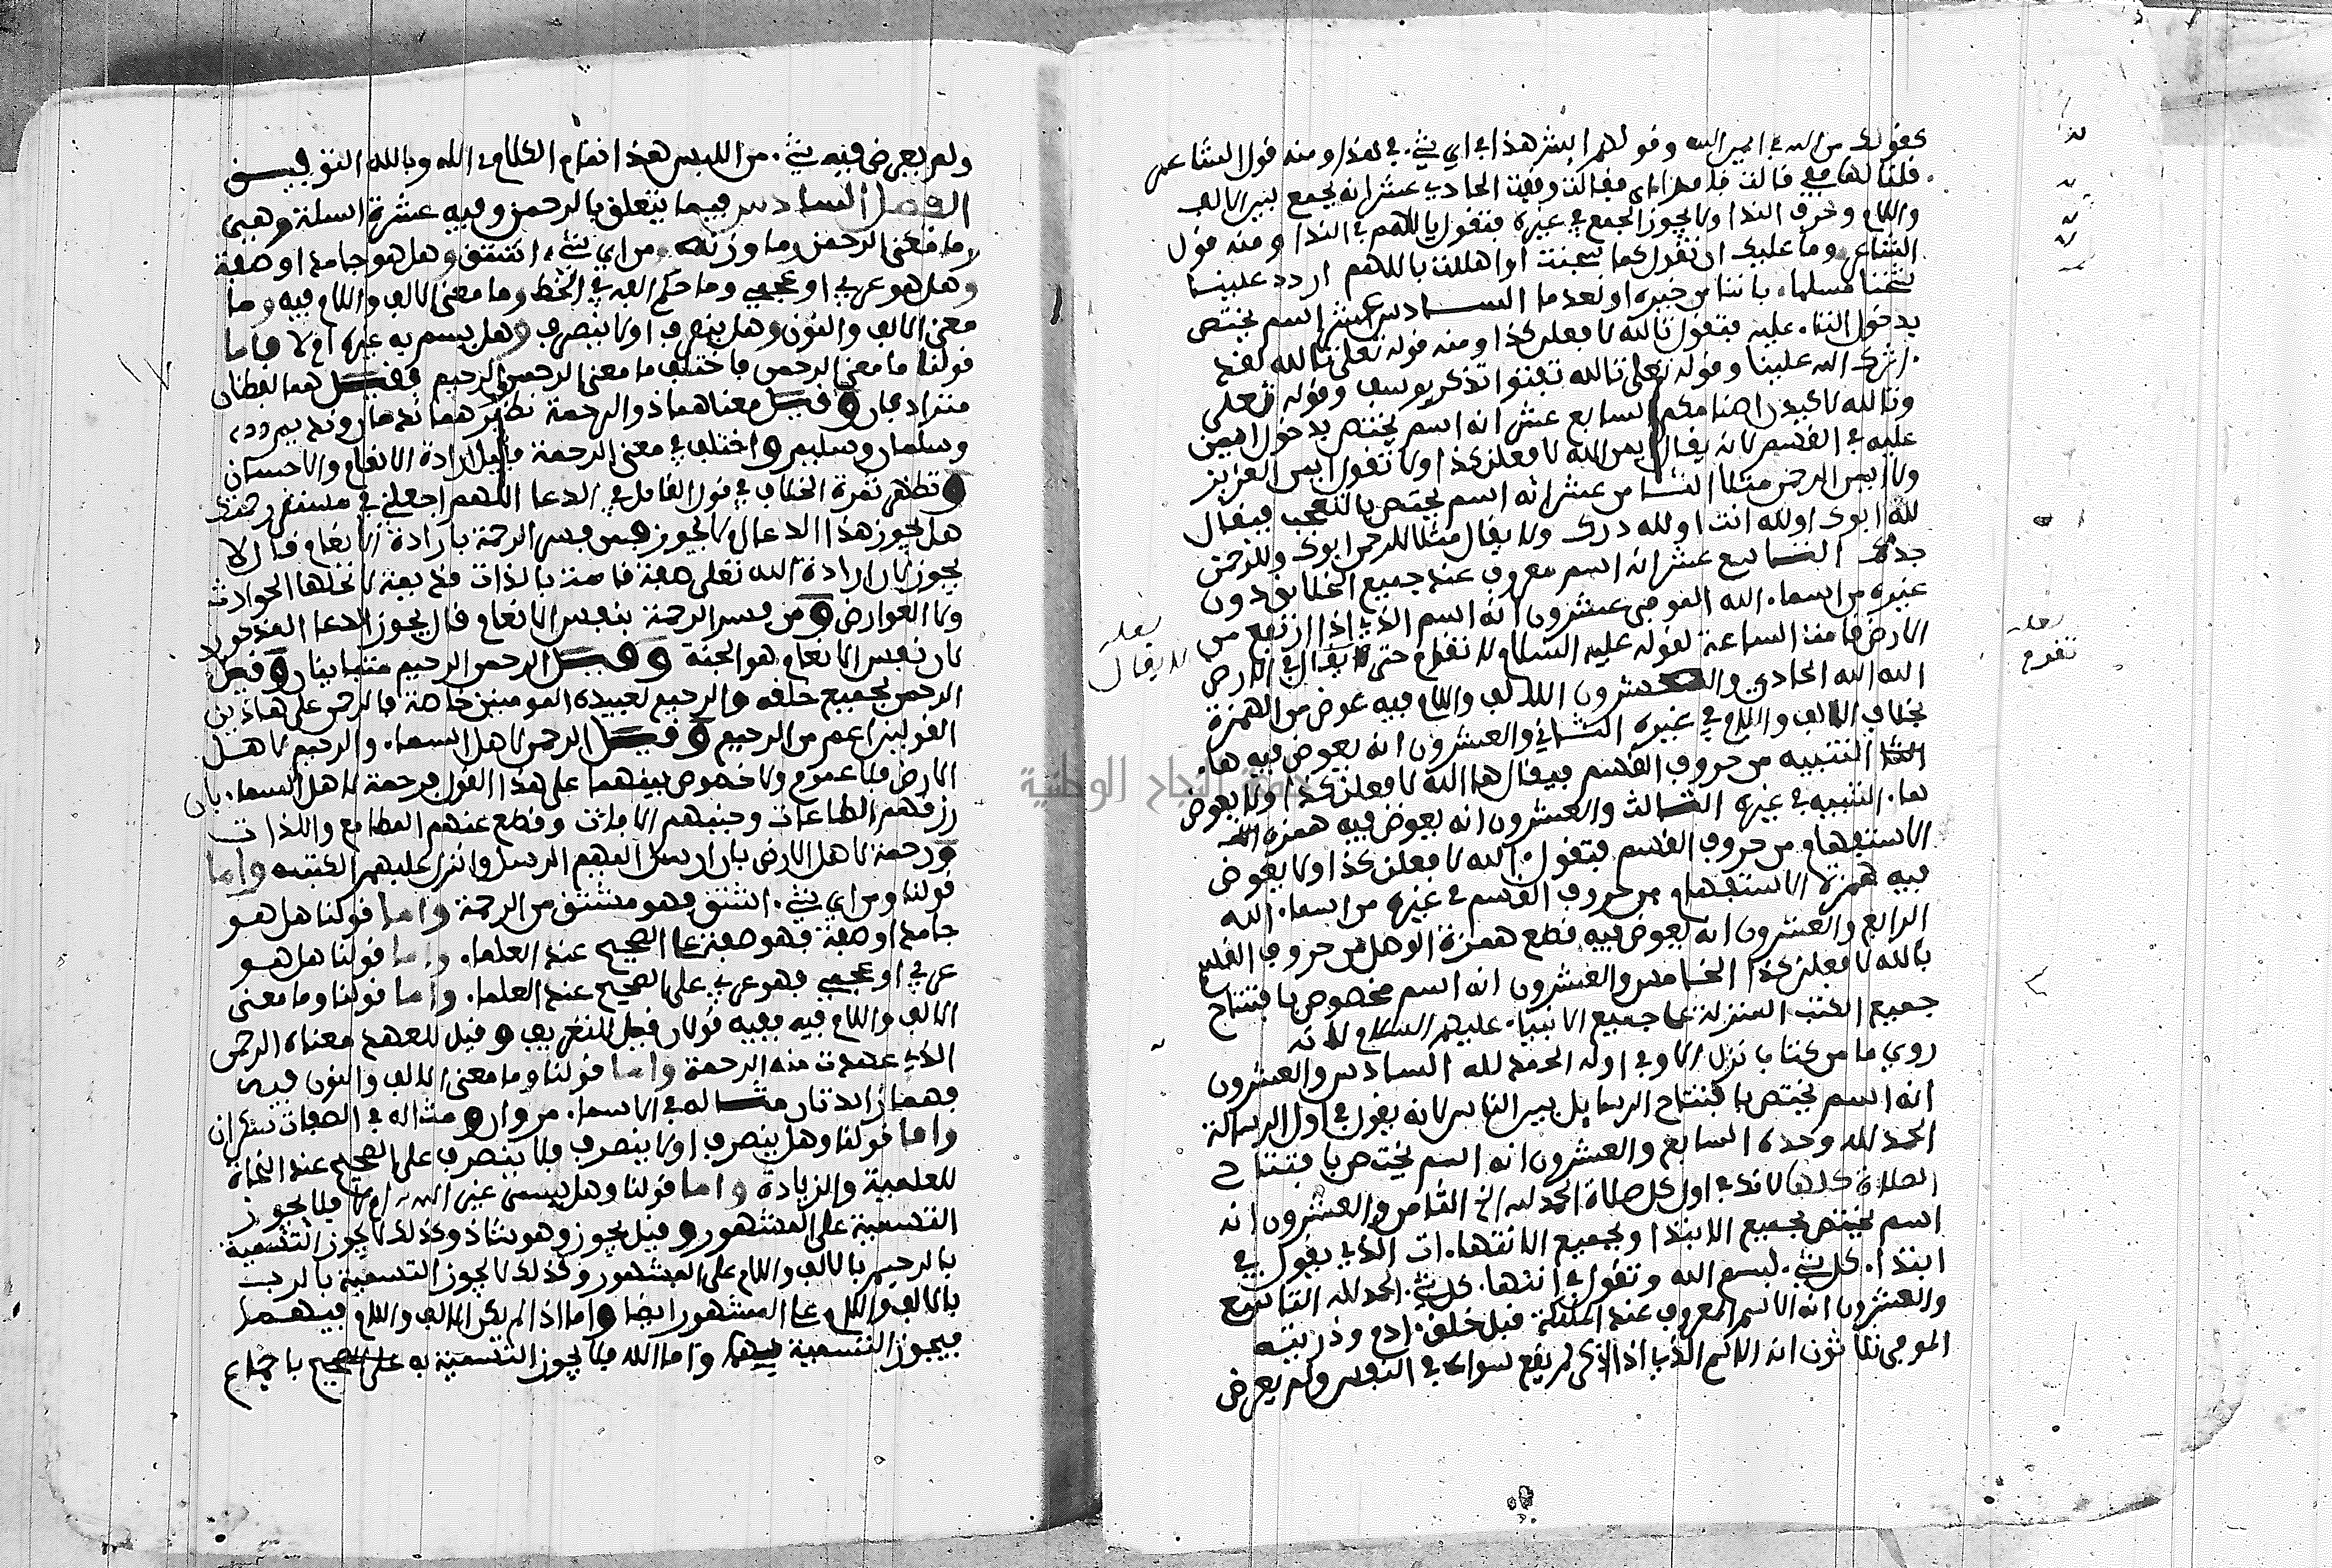 كقولك من الله في ايمن الله وقولهم ايش هذا في اي شيء في هذا ومنه قول الشاعر
قلنا لها قفي قالت وقفت الحادي عشر انه يجمع بين الالف
واللام وحرف الندا ولا يجوز الجمع في غيره فتقول يا اللهم في الندا ومنه قول
الشاعر وما عليك ان تقول كما سبحت او هللت يا اللهم اردد علينا
شيخنا مسلما فاننا من خيره لن نعدما السادس عشر اسم يختص
بدخول التاء عليه فتقول تالله لافعلن كذا ومنه قوله تعلى تالله لقد
اثرك الله علينا وقوله تعلى تالله تفتؤا تذكر يوسف وقوله تعلى
وتالله لاكيدن اصنامكم السابع عشر انه اسم يختص بدخول ايمن
عليه في القسم لانه يقال ايمن الله لافعلن كذا ولا تقول ايمن العزيز
ولا ايمن الرحمن مثلا الثامن عشر انه اسم يختص بالتعجب فيقال
لله ابوك او لله انت او لله درك ولا يقال مثلا للرحمن ابوك وللرحمن
جدك التاسع عشر انه اسم معروف عند جميع الخلايق دون
غيره من اسماء الله الموفي عشرون انه اسم الذي اذا ارتفع من
الارض قامت الساعة لقوله عليه السلام لا تقوم حتى لا يقال في الارض
الله الله الحادي والعشرون الالف واللام فيه عوض من الهمزة
بخلاف الالف واللام في غيره الثاني والعشرون انه يعوض فيه هاء
التنبيه من حروف القسم فيقال ها الله لافعلن كذا ولا يعوض
هاء التنبيه في غيره الثالث والعشرون انه يعوض فيه همزة
الاستفهام من حروف القسم فتقول الله لافعلن كذا ولا يعوض
فيه همزة الاستفهام من حروف القسم في غيره من اسماء الله
الرابع والعشرون انه يعوض فيه قطع همزة الوصل من حروف القسم
بالله لافعلن كذا الخامس والعشرون انه اسم مخصوص بافتتاح
جميع الكتب المنزلة على جميع الانبياء عليهم السلام لانه
روي ما من كتاب نزل الا وفي اوله الحمد لله السادس والعشرون
انه اسم يختص بافتتاح الرسايل بين الناس لانه يقول في اول الرسالة
الحمد لله وحده السابع والعشرون انه اسم يختص بافتتاح
الصلاة كلها لانه في اول كل صلاة الحمد لله الخ الثامن والعشرون انه
اسم يختص بجميع الابتدا وبجميع الانتهاء ان الذي يقول في
ابتداء كل شيء بسم الله وتقول في انتهاء كل شيء الحمد لله التاسع
والعشرون انه الاسم المعروف عند الملئكة قبل خلق ادم وذريته
الموفي ثلاثون انه الاسم الذي اذا ذكر لم يقع سواه في النفس ولم يعرض
لا يقال
تقوم
ولم يعرض فيه شيء من اللبس هذا تمام الكلام في الله وبالله التوفيق
الفصل السادس فيما يتعلق بالرحمن وفيه عشرة اسئلة وهي
ما معنى الرحمن وما وزنه ومن اي شيء اشتق وهل هو جامد او صفة
وهل هو عربي او عجمي وما حكم الفه في الخط وما معنى الالف واللام فيه وما
معنى الالف والنون وهل ينصرف او لا ينصرف وهل يسم به غيره ام لا فاما
قولنا ما معنى الرحمن فاختلف ما معنى الرحمن الرحيم فقيل هما لفظان
مترادفان وقيل معناهما ذو الرحمة نظيرهما ندمان ونديم
وسلمان وسليم واختلف في معنى الرحمة فقيل ارادة الانعام والاحسان
وتظهر ثمرة الخلاف في قول القايل في الدعا اللهم اجعلني في مستقر رحمتك
هل يجوز هذا الدعا ام لا يجوز فمن فسر الرحمة بارادة الانعام قال لا
يجوز لان ارادة الله تعلى صفة قامت بالذات قديمة لا تحلها الحوادث
ولا العوارض ومن فسر الرحمة بنفس الانعام قال يجوز الدعا المذكور
لان نفس الانعام هو الجنة وقيل الرحمن الرحيم متباينان وقيل
الرحمن بجميع خلقه والرحيم لعبيده المومنين خاصة فالرحمن على هاذين
القولين اعم من الرحيم وقيل الرحمن لاهل السماء والرحيم لاهل
الارض فلا عموم ولا خصوص بينهما على هذا القول فرحمة لاهل السماء بان
رزقهم الطاعات وجنبهم الافات وقطع عنهم المطامع واللذات
ورحمة لاهل الارض بان ارسل اليهم الرسل وانزل عليهم الكتب واما
قولنا ومن اي شيء اشتق فهو مشتق من الرحمة واما قولنا هل هو
جامد او صفة فهو صفة على الصحيح عند العلماء واما قولنا هل هو
عربي او عجمي فهو عربي على الصحيح عند العلماء واما قولنا وما معنى
الالف واللام فيه ففيه قولان قيل للتعريف وقيل للعهد معناه الرحمن
الذي عهدت منه الرحمة واما قولنا وما معنى الالف والنون فيه
فهما زائدتان مثاله في الاسماء مروان ومثاله في الصفات سكران
واما قولنا وهل ينصرف او لا ينصرف فلا ينصرف على الصحيح عند النحاة
للعلمية والزيادة واما قولنا وهل يسمى غير الله به ام لا فلا يجوز
التسمية على المشهور وقيل يجوز وهو شاذ وكذلك لا يجوز التسمية
بالرحيم بالالف واللام على المشهور وكذلك لا يجوز التسمية بالرب
بالالف واللام على المشهور ايضا واما اذا لم يكن الالف واللام فيهما
فيجوز التسمية بهما واما الله فلا يجوز التسمية به على الصحيح باجماع
جامعة النجاح الوطنية